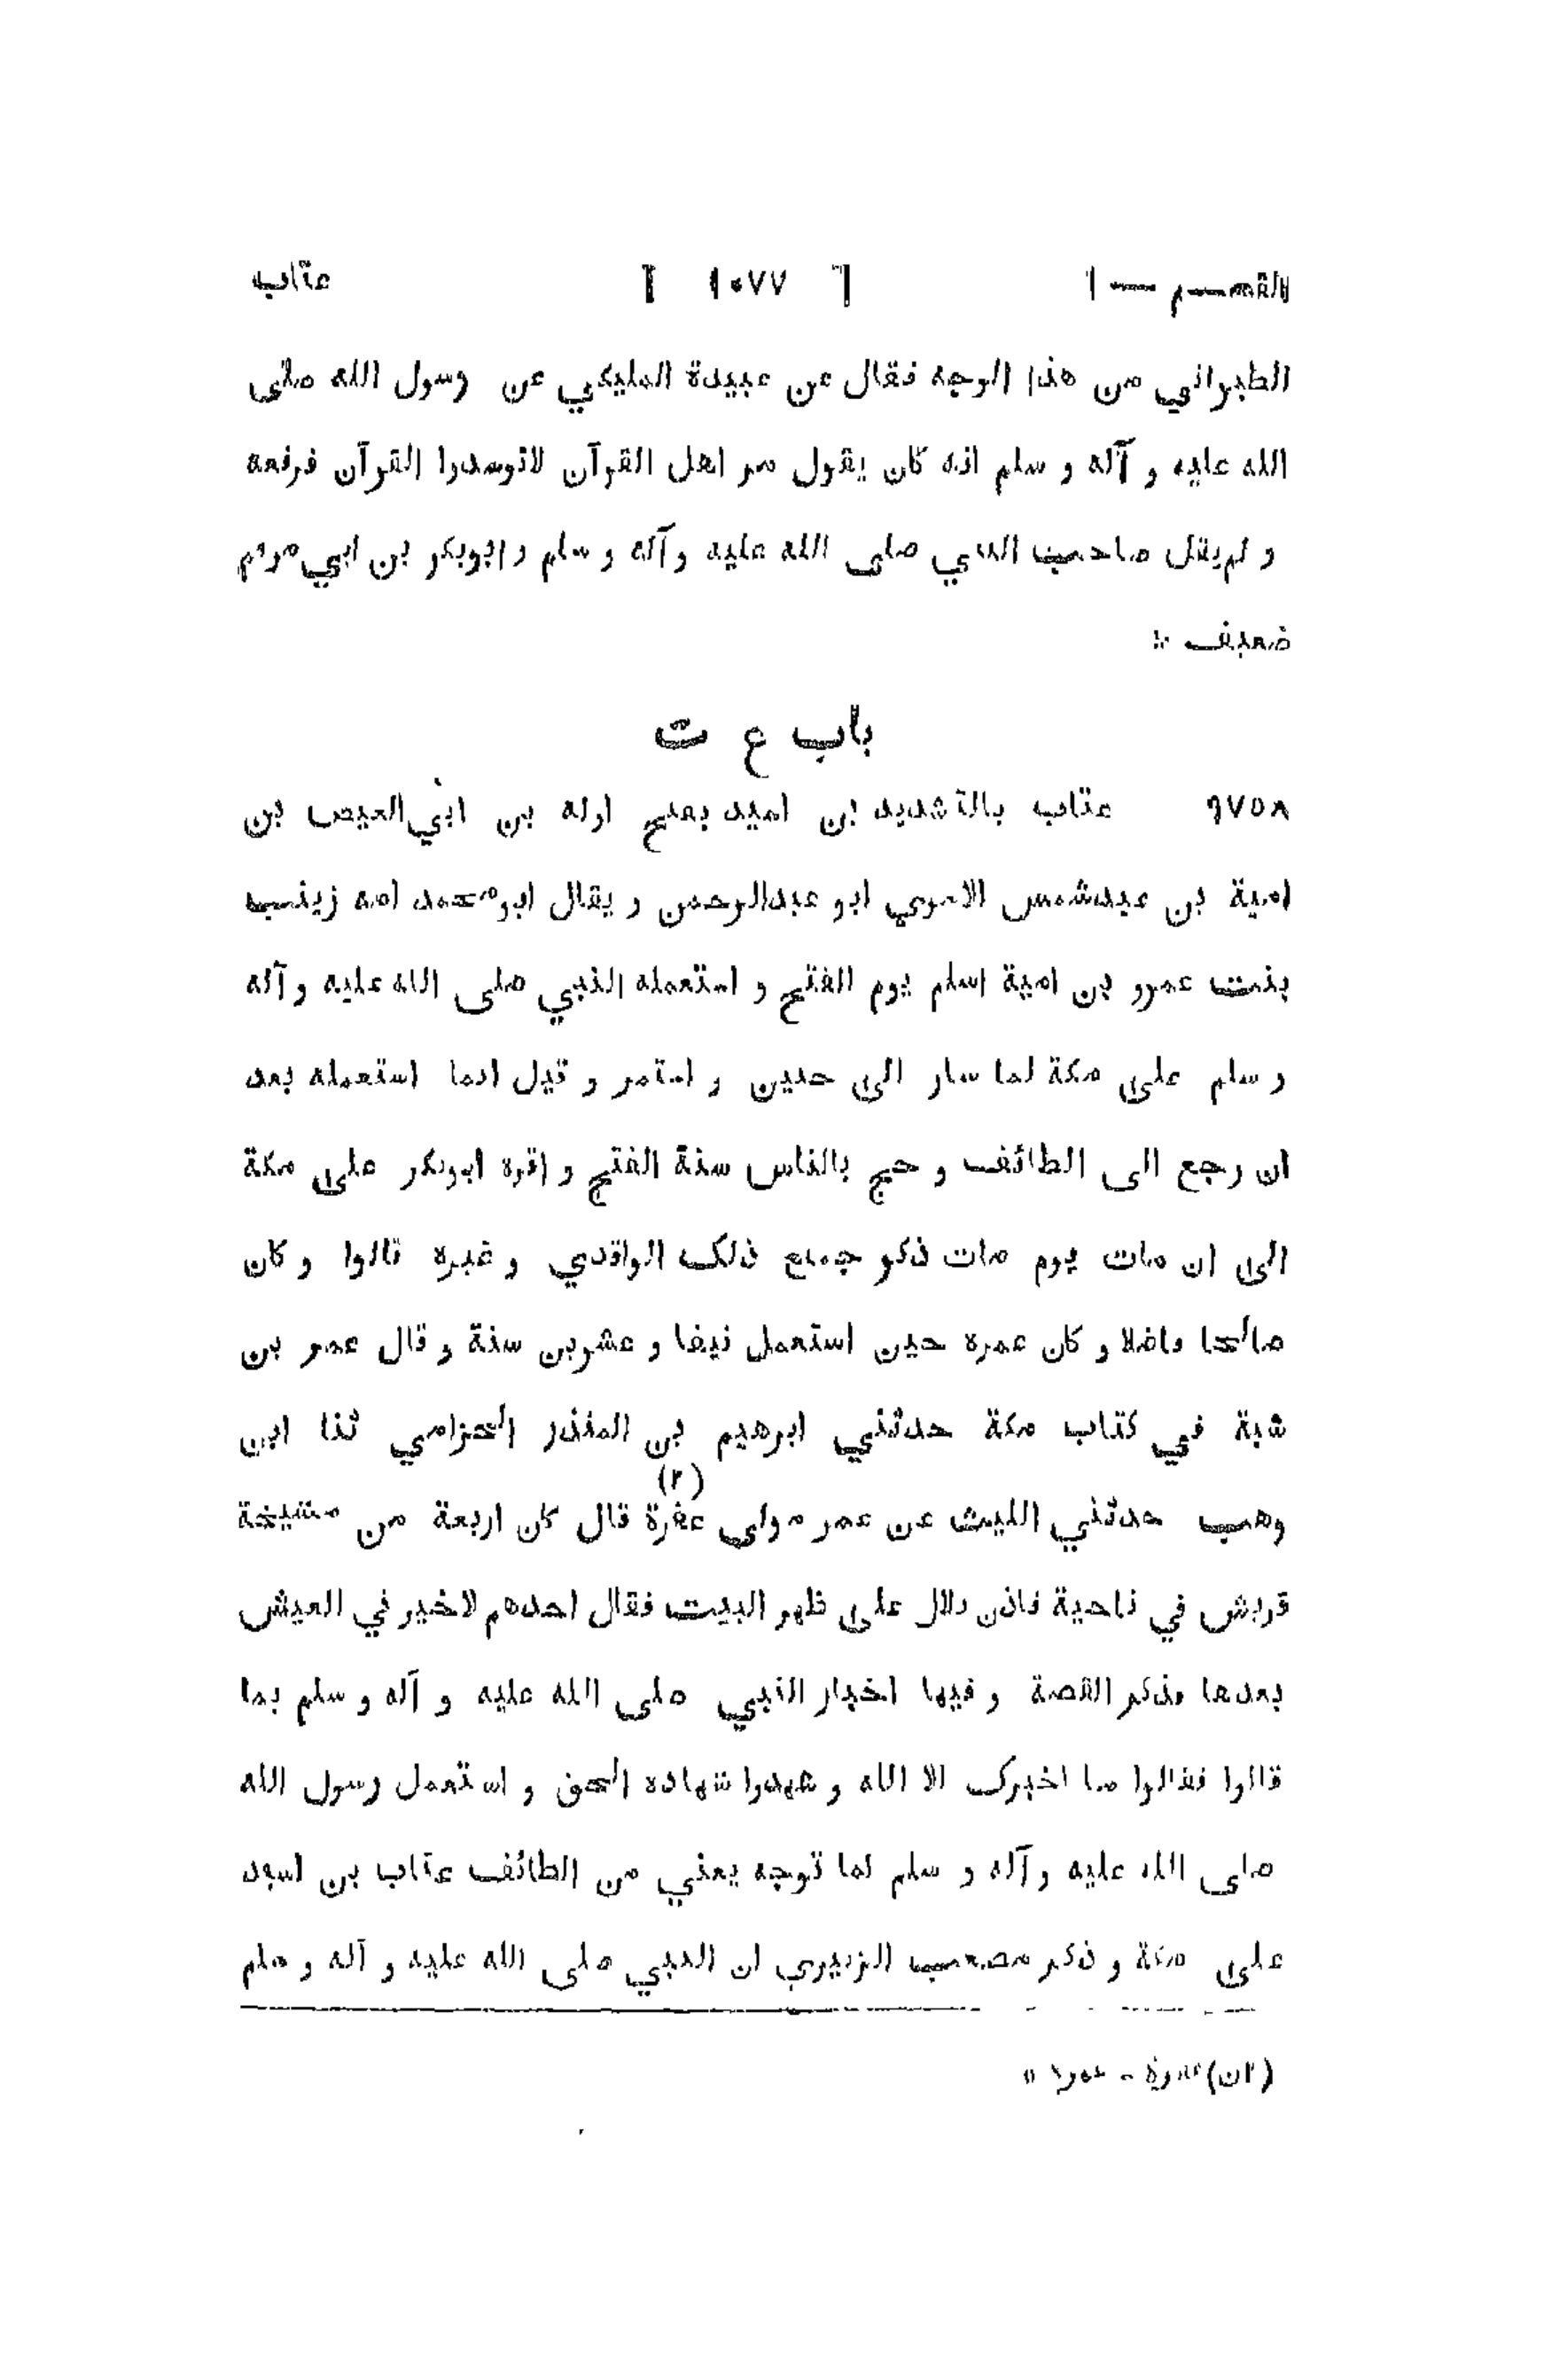 القسم — ١ [ ١٠٧٧ ] عتاب
الطبراني من هذا الوجه فقال عن عبيدة المليكي عن رسول الله صلى
الله عليه و آله و سلم انه كان يقول يا اهل القرآن لاتوسدوا القرآن فرفعه
و لم يقل صاحب النبي صلى الله عليه وآله و سلم و ابوبكر بن ابي مريم
ضعيف *
باب ع ت
٩٧٥٨ عتاب بالتشديد بن اسيد بفتح اوله بن ابي العيص بن
امية بن عبدشمس الاموي ابو عبدالرحمن و يقال ابومحمد امه زينب
بنت عمرو بن امية اسلم يوم الفتح و استعمله النبي صلى الله عليه و آله
و سلم على مكة لما سار الى حنين و استمر و قيل انما استعمله بعد
ان رجع الى الطائف و حج بالناس سنة الفتح و اقره ابوبكر على مكة
الى ان مات يوم مات ذكر جميع ذلك الواقدي و غيره قالوا و كان
صالحا فاضلا و كان عمره حين استعمل نيفا و عشرين سنة و قال عمر بن
شبة في كتاب مكة حدثني ابرهيم بن المنذر الحزامي ثنا ابن
وهب حدثني الليث عن عمر مولى عفرة (٢) قال كان اربعة من مشيخة
قريش في ناحية فاذن بلال على ظهر البيت فقال احدهم لاخير في العيش
بعدها فذكر القصة و فيها اخبار النبي صلى الله عليه و آله و سلم بما
قالوا فقالوا ما اخبرك الا الله و شهدوا شهادة الحق و استعمل رسول الله
صلى الله عليه وآله و سلم لما توجه يعني من الطائف عتاب بن اسيد
على مكة و ذكر مصعب الزبيري ان النبي صلى الله عليه و آله و سلم
(٢ن)